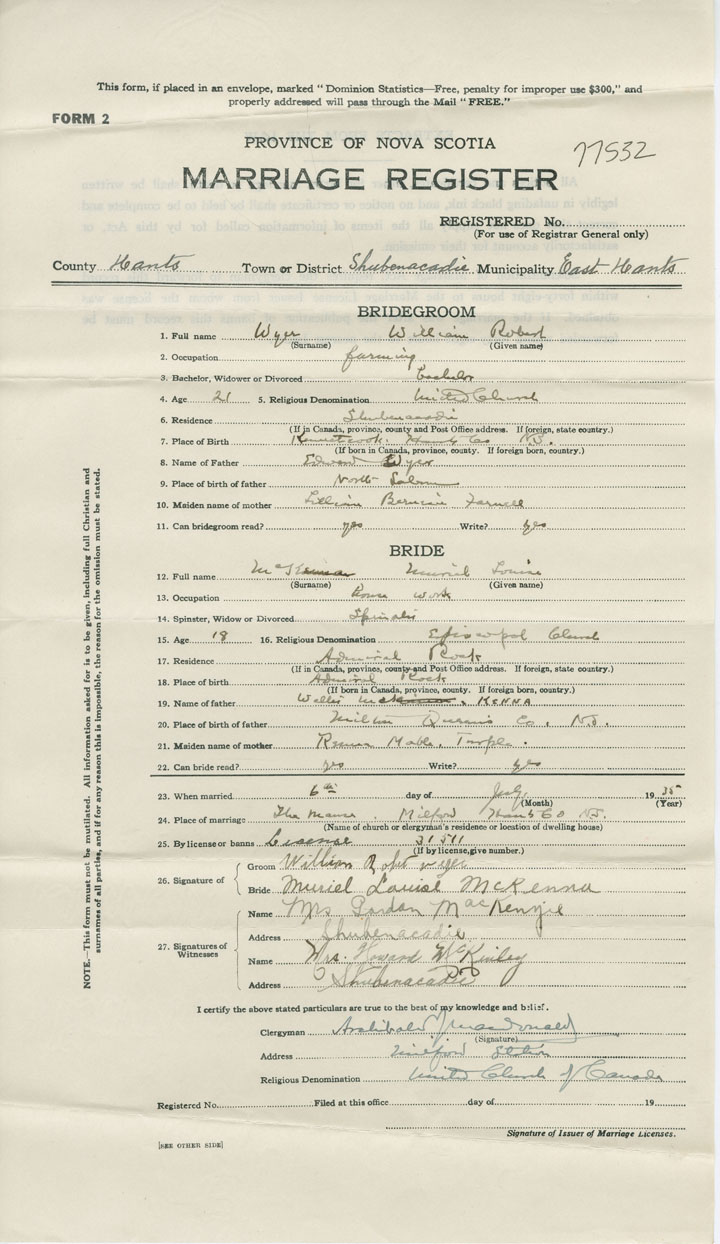 This form, if placed in an envelope, marked "Dominion Statistics—Free, penalty for improper use $300," and
properly addressed will pass through the Mail "FREE."
FORM 2
PROVINCE OF NOVA SCOTIA
77532
MARRIAGE REGISTER
REGISTERED No.
(For use of Registrar General only)
County Hants Town or District Shubenacadie Municipality East Hants
BRIDEGROOM
1. Full name Wyer William Robert
(Surname) (Given name)
2. Occupation farming
3. Bachelor, Widower or Divorced Bachelor
4. Age 21 5. Religious Denomination United Church
6. Residence Shubenacadie
(If in Canada, province, county and Post Office address. If foreign, state country.)
7. Place of Birth Kennetcook. Hants Co N.S.
(If born in Canada, province, county. If foreign born, country.)
8. Name of Father Edward Wyer
9. Place of birth of father North Salem
10. Maiden name of mother Lillian
11. Can bridegroom read? yes Write? yes
BRIDE
12. Full name Muriel Louise
(Surname) (Given name)
13. Occupation House work
14. Spinster, Widow or Divorced Spinster
15. Age 18 16. Religious Denomination Episcopal Church
17. Residence Admiral Rock
(If in Canada, province, county and Post Office address. If foreign, state country.)
18. Place of birth Admiral Rock
(If born in Canada, province, county. If foreign born, country.)
19. Name of father KENNA
20. Place of birth of father Milton Queens Co. N.S.
21. Maiden name of mother
22. Can bride read? yes Write? yes
23. When married 6th day of July 19 35
(Month) (Year)
24. Place of marriage The Manse. Milford Hants Co N.S.
(Name of church or clergyman's residence or location of dwelling house)
25. By license or banns License 31511
(If by license, give number.)
26. Signature of
Groom William Robt wyer
Bride Muriel Louise McKenna
27. Signatures of Witnesses
Name Mrs Gordon MacKenzie
Address Shubenacadie
Name Mrs. Howard McKinley
Address Shubenacadie
I certify the above stated particulars are true to the best of my knowledge and belief.
Clergyman Archibald J macdonald
(Signature)
Address Milford Station
Religious Denomination United Church of Canada
Registered No. Filed at this office day of 19
Signature of Issuer of Marriage Licenses.
[SEE OTHER SIDE]
NOTE.—This form must not be mutilated. All information asked for is to be given, including full Christian and
surnames of all parties, and if for any reason this is impossible, the reason for the omission must be stated.